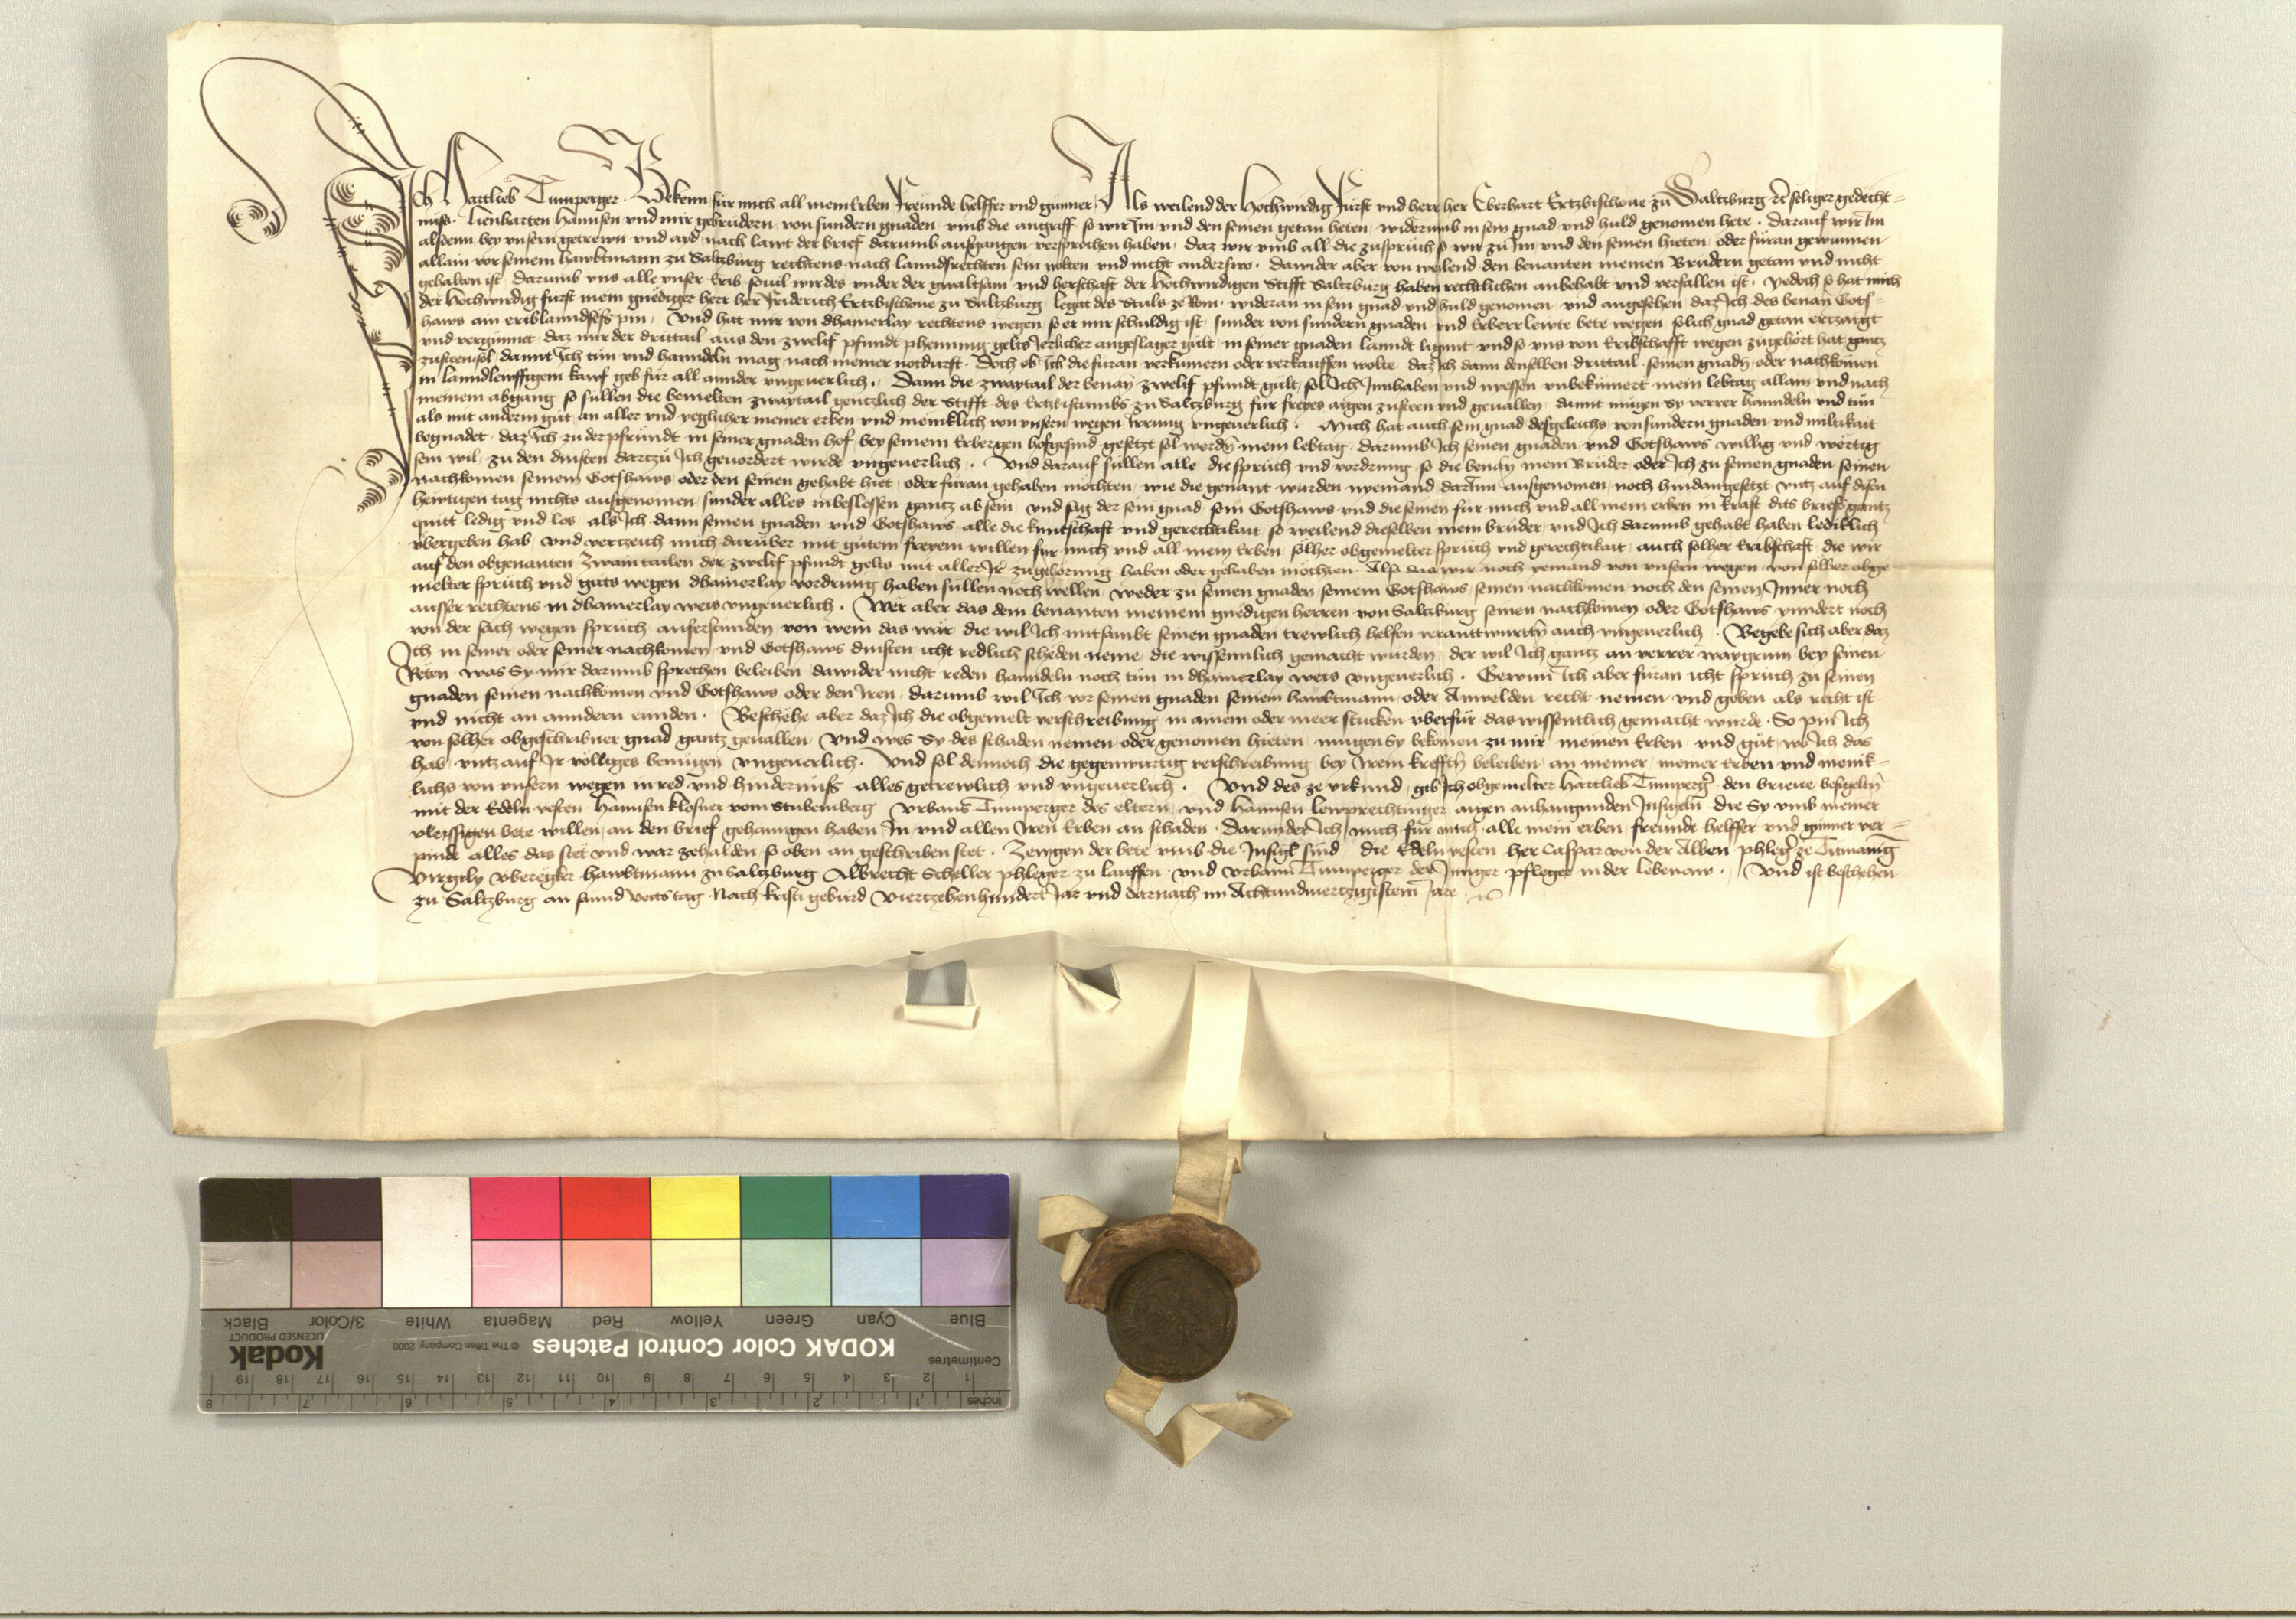 Ich Hartlieb Tumperger. Bekenn fur mich all mein Erben Freunde helffer und gunner, Als weilend der Hochwirdig Furst und herr her Eberhart Ertzbischoue zu Saltzburg seliger gedecht=
nuss. Lienharten Hannsen und mir gebrudern, von sundern gnaden, umb die angriff so wir Im und den seinen getan heten, widerumb in sein gnad und huld genomen hete. Darauf wir Im
alsdenn bey unsern getrewn und ayd, nach lawt der brief darumb ausgangen versprochen haben, daz wir umb all die zuspruch so wir zu Im und den seinen hieten, oder furan gewunnen
allain vor seinem hawbtmann zu Saltzburg rechtens nach lanndsrechten sein wolten und nicht anderswo. dawider aber von weilend den benanten meinen Brudern getan und nicht
gehalten ist, darumb uns alle unser Erib souil wir des under der gwaltsam und herschaft der Hochwirdigen Stifft Saltzburg haben rechtlichen anbehabt und verfallen ist. yedoch so hat mich
der Hochwirdig furst mein gnediger herr her Friderich Ertzbischoue zu Saltzburg legat des Stuls ze Rom, wideran in sein gnad und huld genomen, und angesehen daz Ich des benan Gots=
haws ain eriblanndsess pin, Und hat mir von dhainerlay rechtens wegen, so er mir schuldig ist, sunder von sundern gnaden und Erberr lewte bete wegen solich gnad getan ertzaigt
und vergunnet, daz mir der drittail aus den zwelif pfundt phenning gelts Jerlicher angeslager gult, in seiner gnaden lanndt ligunt, und so uns von Eribschafft wegen zugehort hat gantz
zusteen sol, damit Ich tun und hanndeln mag nach meiner notdurft. Doch ob Ich die furan verkumern oder verkauffen wolte, daz Ich dann denselben drittail seinen gnaden, oder nachkomen
in lanndlewffigem kauf geb fur all annder ungeuerlich. Dann die zwaytail der benan zwelif pfundt gult, sol Ich Innhaben und niessen unbekumert mein lebtag allain und nach
meinem abgang so sullen die bemelten zwaytail gentzlich der Stifft des Ertzbistumbs zu Saltzburg fur freyes aigen zusteen und geuallen, damit mugen Sy verrer hanndeln und tun
als mit anderm gut, an aller und yeglicher meiner erben und meniklich von unsern wegen Irrung ungeuerlich. Mich hat auch sein gnad desgeleichs von sundern gnaden und miltikait
begnadet, daz Ich zu der pfrundt in seiner gnaden hof, bey seinem Erbergen hofgesind gesetzt sol werden mein lebtag. darumb Ich seinen gnaden und Gotshaws willig und wertig
sein wil, zu den dinsten dartzu Ich geuordert wirde ungeuerlich. Und darauf sullen alle die spruch und vordrung, so die benan mein Bruder oder Ich zu seinen gnaden seinen
nachkomen seinem Gotshaws oder den seinen gehabt hiet, oder furan gehaben mochten, wie die genant wurden niemand darInn ausgenomen, noch hindangesetzt untz auf disen
hewtigen tag nichts ausgenomen, sunder alles inbeslossen gantz ab sein, und sag der sein gnad sein Gotshaws und die seinen fur mich und all mein erben in kraft dits briefs gantz
quitt ledig und los, als Ich dann seinen gnaden und Gotshaws alle die kuntschaft und gerechtikait, so weilend dieselben mein bruder, und Ich darumb gehabt haben lediklich
ubergeben hab, und vertzeich mich daruber mit gutem freyem willen fur mich und all mein Erben solher obgemelter spruch und gerechtikait, auch solher Eribschaft, die wir
auf den obgenanten zwain tailen der zwelif pfundt gelts mit aller Ir zugehorung haben oder gehaben mochten. Also das wir noch yemand von unsern wegen, von solher obge
melter spruch und guts wegen dhainerlay vordrung haben sullen noch wellen, weder zu seinen gnaden, seinem Gotshaws, seinen nachkomen noch den seinen, Inner noch
ausser rechtens in dhainerlay weis ungeuerlich. Wer aber das dem benanten meinem gnedigen herren von Saltzburg seinen nachkomen oder Gotshaws yundert noch
von der sach wegen spruch auferstunden von wem das wär, die wil Ich mitsambt seinen gnaden trewlich helfen verantwurtten auch ungeuerlich. Begebe sich aber daz
Ich in seiner oder seiner nachkomen und Gotshaws dinsten icht redlich scheden neme, die wissennlich gemacht wurden, der wil Ich gantz an verrer waygrung bey seinen
Reten, was Sy mir darumb sprechen beleiben, dawider nicht reden hanndeln noch tun in dhainerlay weis ungeuerlich. Gewunn Ich aber furan icht spruch zu seinen
gnaden seinen nachkomen und Gotshaws oder den Iren, darumb wil Ich vor seinen gnaden seinem hawbtmann, oder Anwelden recht nemen und geben als recht ist
und nicht an anndern ennden. Beschehe aber daz Ich die obgemelt verschreibung in ainem oder meer stucken uberfur, das wissentlich gemacht wurde. So pin Ich
von solher obgeschribner gnad gantz geuallen, und wes Sy des schaden nemen, oder genomen hieten, mugen Sy bekomen zu mir, meinen Erben, und gut, wo Ich das
hab, untz auf Ir volligs benugen ungeuerlich. Und sol dennoch die gegenwurtig verschreibung bey Irem krefften beleiben, an meiner, meiner Erben und menik=
lichs von unsern wegen inred und hindernuss, alles getrewlich und ungeuerlich. Und des ze urkund, gib Ich obgemelter Hartlieb Tumperger den brieue besigelten
mit der Edeln vesten Hannsen Klosner vom Stubemberg Urbans Tumperger des eltern, und Hannsen lewprechtinger aigen anhangunden Insigeln, die Sy umb meiner
vleissigen bete willen, an den brief gehanngen haben, In und allen Iren Erben an schaden. Darunder Ich mich fur mich, alle mein erben, freunde helffer und gunner ver=
pinde alles das stet und war zehalden, so oben an geschriben stet. Zewgen der bete umb die Insigl sind die Edeln vesten her Caspar von der Alben phleger ze Titmaning
Virgily Uberegker hawbtmann zu Saltzburg Albrecht Scheller phleger zu lauffen, und Urbann Tumperger der Junger pfleger in der lebenaw. Und ist beschehen
zu Saltzburg an sannd Veits tag. Nach kristi geburd Viertzehenhundert Jar und darnach im Achtundviertzigistem Jare.
KODAK Color Control Patches
Kodak
LICENSED PRODUCT
© The Tiffen Company, 2000
Blue Cyan Green Yellow Red Magenta White 3/Color Black
Centimetres
1 2 3 4 5 6 7 8 9 10 11 12 13 14 15 16 17 18 19
Inches 1 2 3 4 5 6 7 8